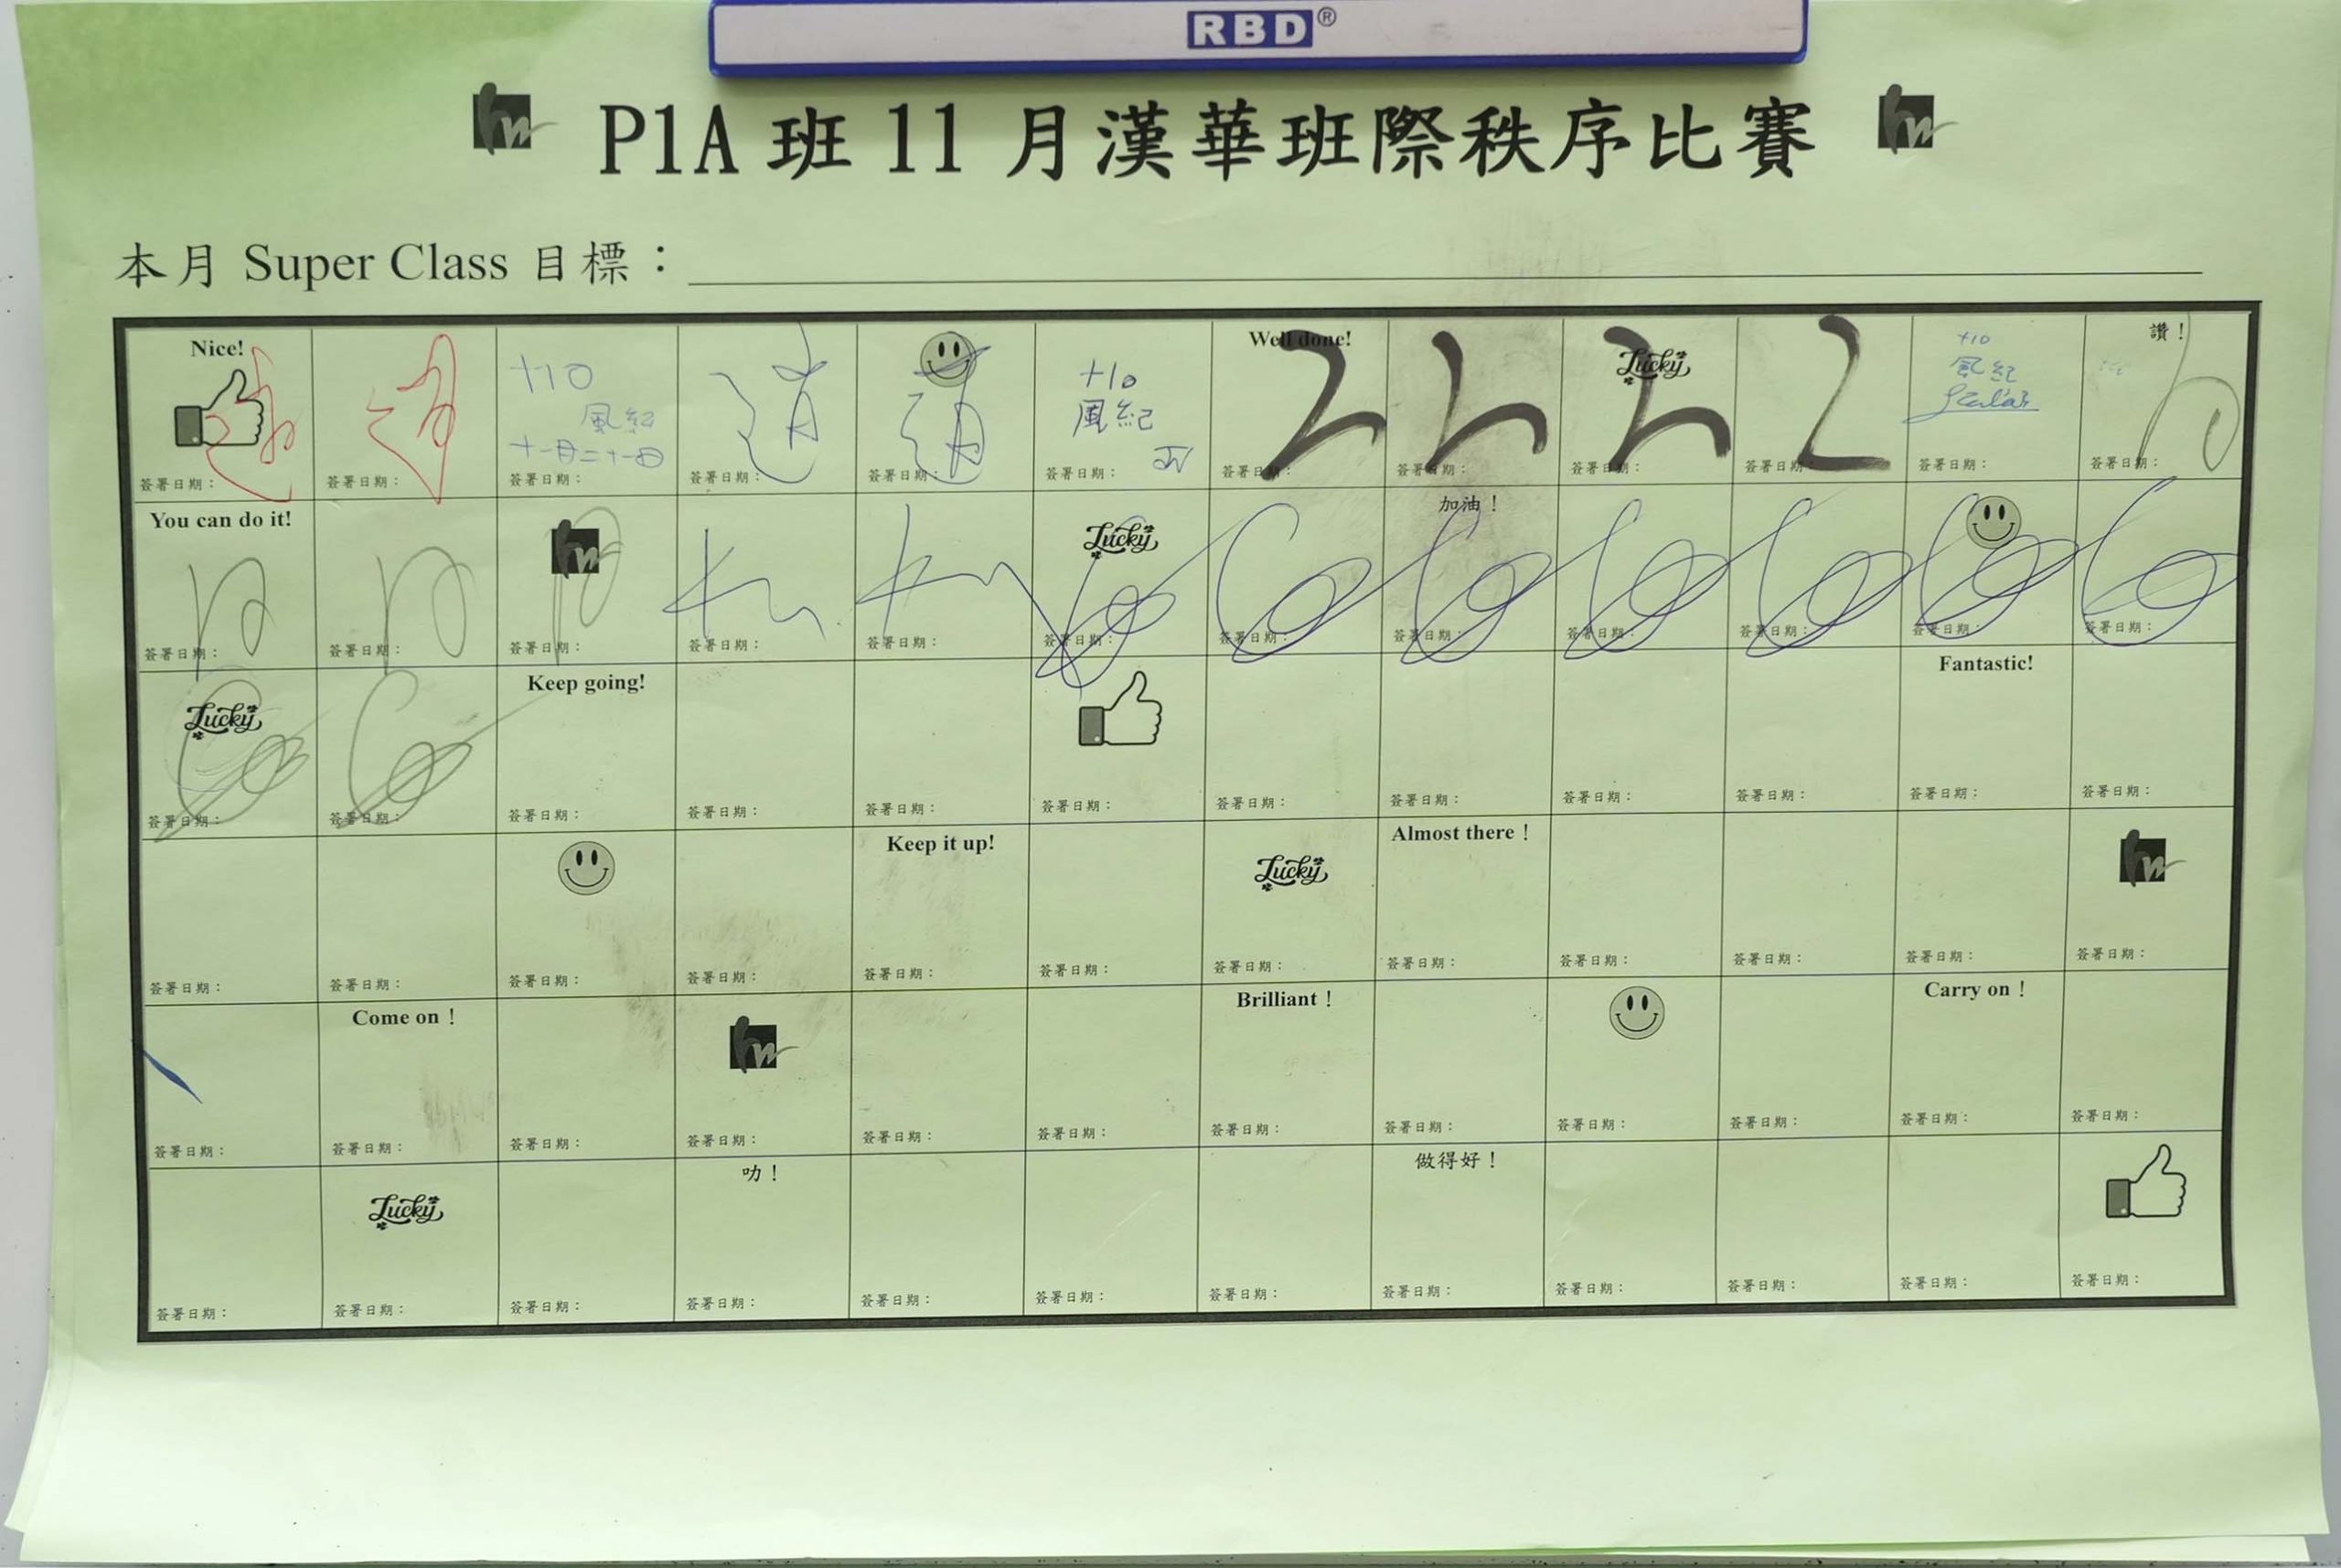 RBD®
P1A 班 11 月漢華班際秩序比賽
本月 Super Class 目標：
Nice!
Well done!
讚！
+10
風紀
+10
風紀
Lucky
+10
風紀
簽署日期： 簽署日期： 簽署日期： 簽署日期： 簽署日期： 簽署日期： 簽署日期： 簽署日期： 簽署日期： 簽署日期： 簽署日期： 簽署日期：
You can do it!
加油！
hw
Lucky
簽署日期： 簽署日期： 簽署日期： 簽署日期： 簽署日期： 簽署日期： 簽署日期： 簽署日期： 簽署日期： 簽署日期： 簽署日期： 簽署日期：
Lucky
Keep going!
Fantastic!
簽署日期： 簽署日期： 簽署日期： 簽署日期： 簽署日期： 簽署日期： 簽署日期： 簽署日期： 簽署日期： 簽署日期： 簽署日期： 簽署日期：
Keep it up!
Lucky
Almost there！
hw
簽署日期： 簽署日期： 簽署日期： 簽署日期： 簽署日期： 簽署日期： 簽署日期： 簽署日期： 簽署日期： 簽署日期： 簽署日期： 簽署日期：
Come on！
hw
Brilliant！
Carry on！
簽署日期： 簽署日期： 簽署日期： 簽署日期： 簽署日期： 簽署日期： 簽署日期： 簽署日期： 簽署日期： 簽署日期： 簽署日期： 簽署日期：
Lucky
叻！
做得好！
簽署日期： 簽署日期： 簽署日期： 簽署日期： 簽署日期： 簽署日期： 簽署日期： 簽署日期： 簽署日期： 簽署日期： 簽署日期： 簽署日期：